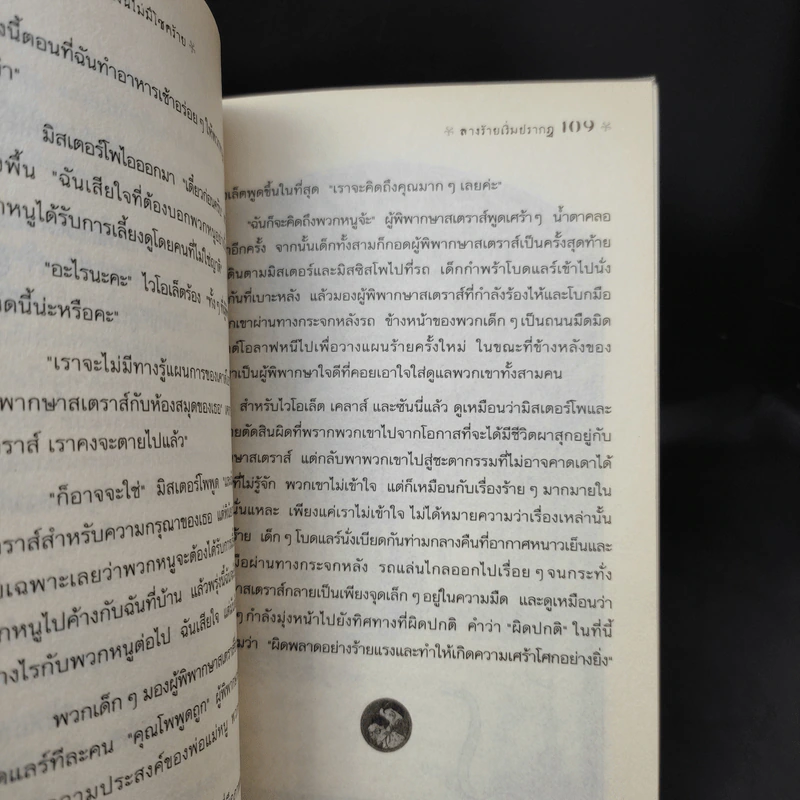 นไม่มีโชคร้าย
งนี้ตอนที่ฉันทำอาหารเช้าอร่อย ๆ ให้
มิสเตอร์โพไอออกมา "เดี๋ยวก่อน
งพื้น "ฉันเสียใจที่ต้องบอกพวกหนู
หนูได้รับการเลี้ยงดูโดยคนที่ไม่ใช่ญาติ
"อะไรนะคะ" ไวโอเล็ตร้อง "ทั้ง ๆ ที่
ดนี้น่ะหรือคะ"
"เราจะไม่มีทางรู้แผนการของ
พิพากษาสเตราส์กับห้องสมุดของเธอ"
ตราส์ เราคงจะตายไปแล้ว"
"ก็อาจจะใช่" มิสเตอร์โพพูด
ตราส์สำหรับความกรุณาของเธอ แต่
ยเฉพาะเลยว่าพวกหนูจะต้องได้รับการ
กหนูไปค้างกับฉันที่บ้าน แล้วพรุ่งนี้
างไรกับพวกหนูต่อไป ฉันเสียใจ
พวกเด็ก ๆ มองผู้พิพากษาสเตราส์
ดแลร์ทีละคน "คุณโพพูดถูก" ผู้พิพากษา
วามประสงค์ของพ่อแม่หนู
ลางร้ายเริ่มปรากฏ 109
อเล็ตพูดขึ้นในที่สุด "เราจะคิดถึงคุณมาก ๆ เลยค่ะ"
"ฉันก็จะคิดถึงพวกหนูจ้ะ" ผู้พิพากษาสเตราส์พูดเศร้า ๆ น้ำตาคลอ
าอีกครั้ง จากนั้นเด็กทั้งสามก็กอดผู้พิพากษาสเตราส์เป็นครั้งสุดท้าย
ดินตามมิสเตอร์และมิสซิสโพไปที่รถ เด็กกำพร้าโบดแลร์เข้าไปนั่ง
กันที่เบาะหลัง แล้วมองผู้พิพากษาสเตราส์ที่กำลังร้องไห้และโบกมือ
กเขาผ่านทางกระจกหลังรถ ข้างหน้าของพวกเด็ก ๆ เป็นถนนมืดมิด
ต์โอลาฟหนีไปเพื่อวางแผนร้ายครั้งใหม่ ในขณะที่ข้างหลังของ
าเป็นผู้พิพากษาใจดีที่คอยเอาใจใส่ดูแลพวกเขาทั้งสามคน
สำหรับไวโอเล็ต เคลาส์ และซันนี่แล้ว ดูเหมือนว่ามิสเตอร์โพและ
ยตัดสินผิดที่พรากพวกเขาไปจากโอกาสที่จะได้มีชีวิตผาสุกอยู่กับ
ษาสเตราส์ แต่กลับพาพวกเขาไปสู่ชะตากรรมที่ไม่อาจคาดเดาได้
ที่ไม่รู้จัก พวกเขาไม่เข้าใจ แต่ก็เหมือนกับเรื่องร้าย ๆ มากมายใน
นั่นแหละ เพียงแค่เราไม่เข้าใจ ไม่ได้หมายความว่าเรื่องเหล่านั้น
ร้าย เด็ก ๆ โบดแลร์นั่งเบียดกันท่ามกลางคืนที่อากาศหนาวเย็นและ
มือผ่านทางกระจกหลัง รถแล่นไกลออกไปเรื่อย ๆ จนกระทั่ง
าสเตราส์กลายเป็นเพียงจุดเล็ก ๆ อยู่ในความมืด และดูเหมือนว่า
ๆ กำลังมุ่งหน้าไปยังทิศทางที่ผิดปกติ คำว่า "ผิดปกติ" ในที่นี้
มว่า "ผิดพลาดอย่างร้ายแรงและทำให้เกิดความเศร้าโศกอย่างยิ่ง"